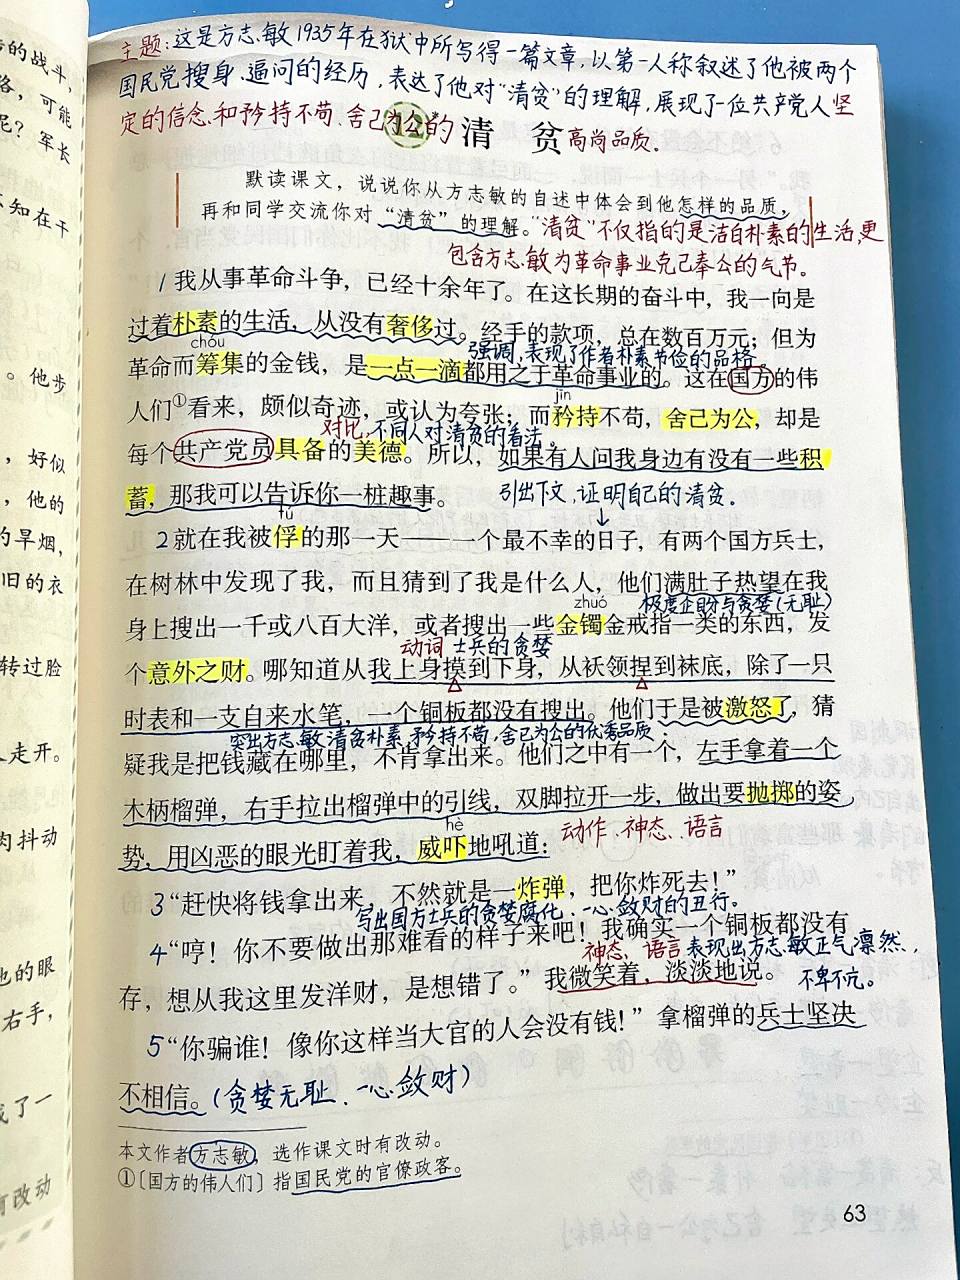 主题：这是方志敏1935年在狱中所写得一篇文章，以第一人称叙述了他被两个
国民党搜身、逼问的经历，表达了他对“清贫”的理解，展现了一位共产党人坚
定的信念、和矜持不苟、舍己为公的高尚品质.
12 清 贫
默读课文，说说你从方志敏的自述中体会到他怎样的品质，
再和同学交流你对“清贫”的理解。
“清贫”不仅指的是洁白朴素的生活，更
包含方志敏为革命事业克己奉公的气节。
1 我从事革命斗争，已经十余年了。在这长期的奋斗中，我一向是
过着朴素的生活，从没有奢侈过。经手的款项，总在数百万元；但为
chóu
强调，表现了作者朴素节俭的品格。
革命而筹集的金钱，是一点一滴都用之于革命事业的。这在国方的伟
jīn
人们①看来，颇似奇迹，或认为夸张；而矜持不苟，舍己为公，却是
对比，不同人对清贫的看法。
每个共产党员具备的美德。所以，如果有人问我身边有没有一些积
蓄，那我可以告诉你一桩趣事。
引出下文，证明自己的清贫.
fú
2 就在我被俘的那一天——一个最不幸的日子，有两个国方兵士，
在树林中发现了我，而且猜到了我是什么人，他们满肚子热望在我
zhuó
极度企盼与贪婪（无耻）
身上搜出一千或八百大洋，或者搜出一些金镯金戒指一类的东西，发
动词 士兵的贪婪
个意外之财。哪知道从我上身摸到下身，从袄领捏到袜底，除了一只
时表和一支自来水笔，一个铜板都没有搜出。他们于是被激怒了，猜
突出方志敏清贫朴素，矜持不苟，舍己为公的优秀品质.
疑我是把钱藏在哪里，不肯拿出来。他们之中有一个，左手拿着一个
木柄榴弹，右手拉出榴弹中的引线，双脚拉开一步，做出要抛掷的姿
hè
动作、神态、语言
势，用凶恶的眼光盯着我，威吓地吼道：
3 “赶快将钱拿出来，不然就是一炸弹，把你炸死去！”
写出国方士兵的贪婪腐化、一心敛财的丑行。
4 “哼！你不要做出那难看的样子来吧！我确实一个铜板都没有
神态、语言表现出方志敏正气凛然、
不卑不亢。
存，想从我这里发洋财，是想错了。”我微笑着，淡淡地说。
5 “你骗谁！像你这样当大官的人会没有钱！”拿榴弹的兵士坚决
不相信。（贪婪无耻、一心敛财）
本文作者方志敏，选作课文时有改动。
①〔国方的伟人们〕指国民党的官僚政客。
63
的战斗，
格，可能
呢？军长
知在干
。他步
，好似
，他的
的旱烟，
旧的衣
转过脸
走开。
肉抖动
也的眼
右手，
成了一
有改动